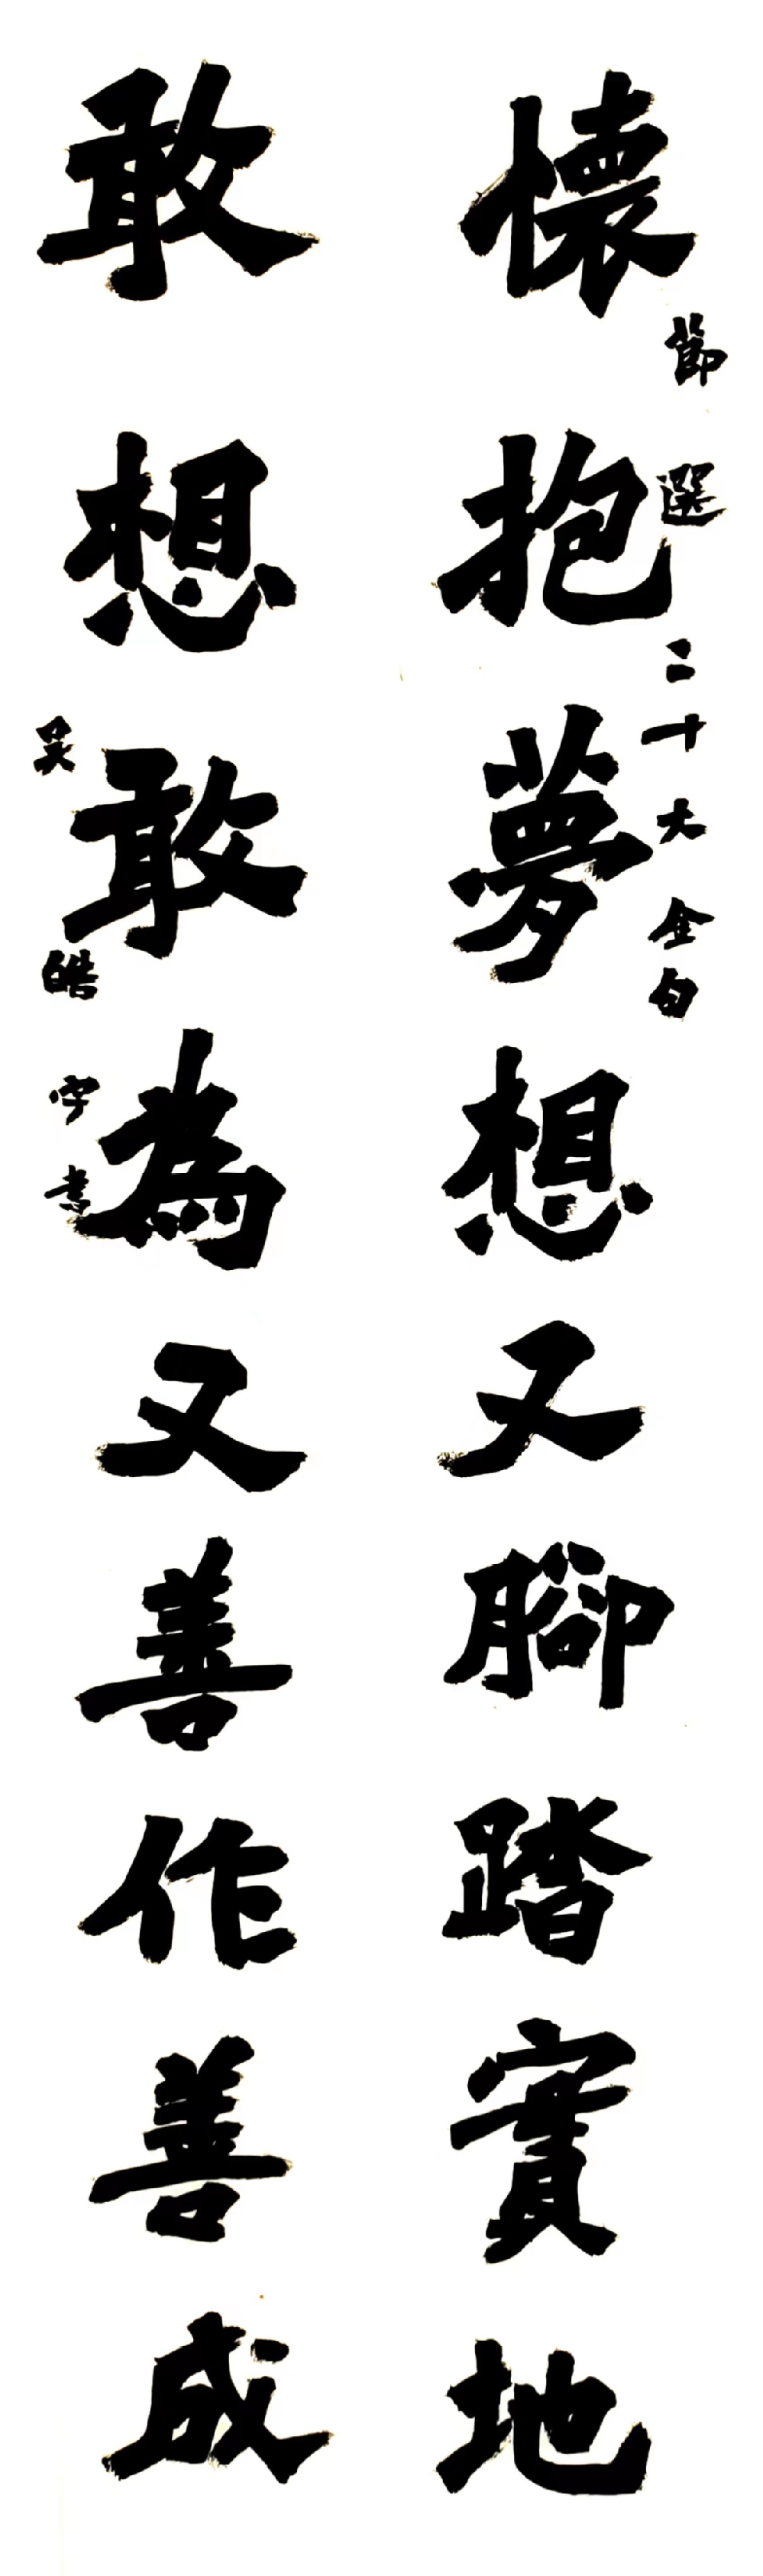 懷抱夢想又腳踏實地
節選二十大金句
敢想敢為又善作善成
吴皓宇書